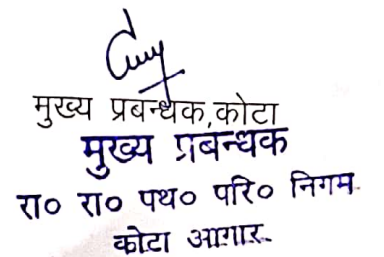 मुख्य प्रबन्धक,कोटा
मुख्य प्रबन्धक
रा० रा० पथ० परि० निगम
कोटा आगार